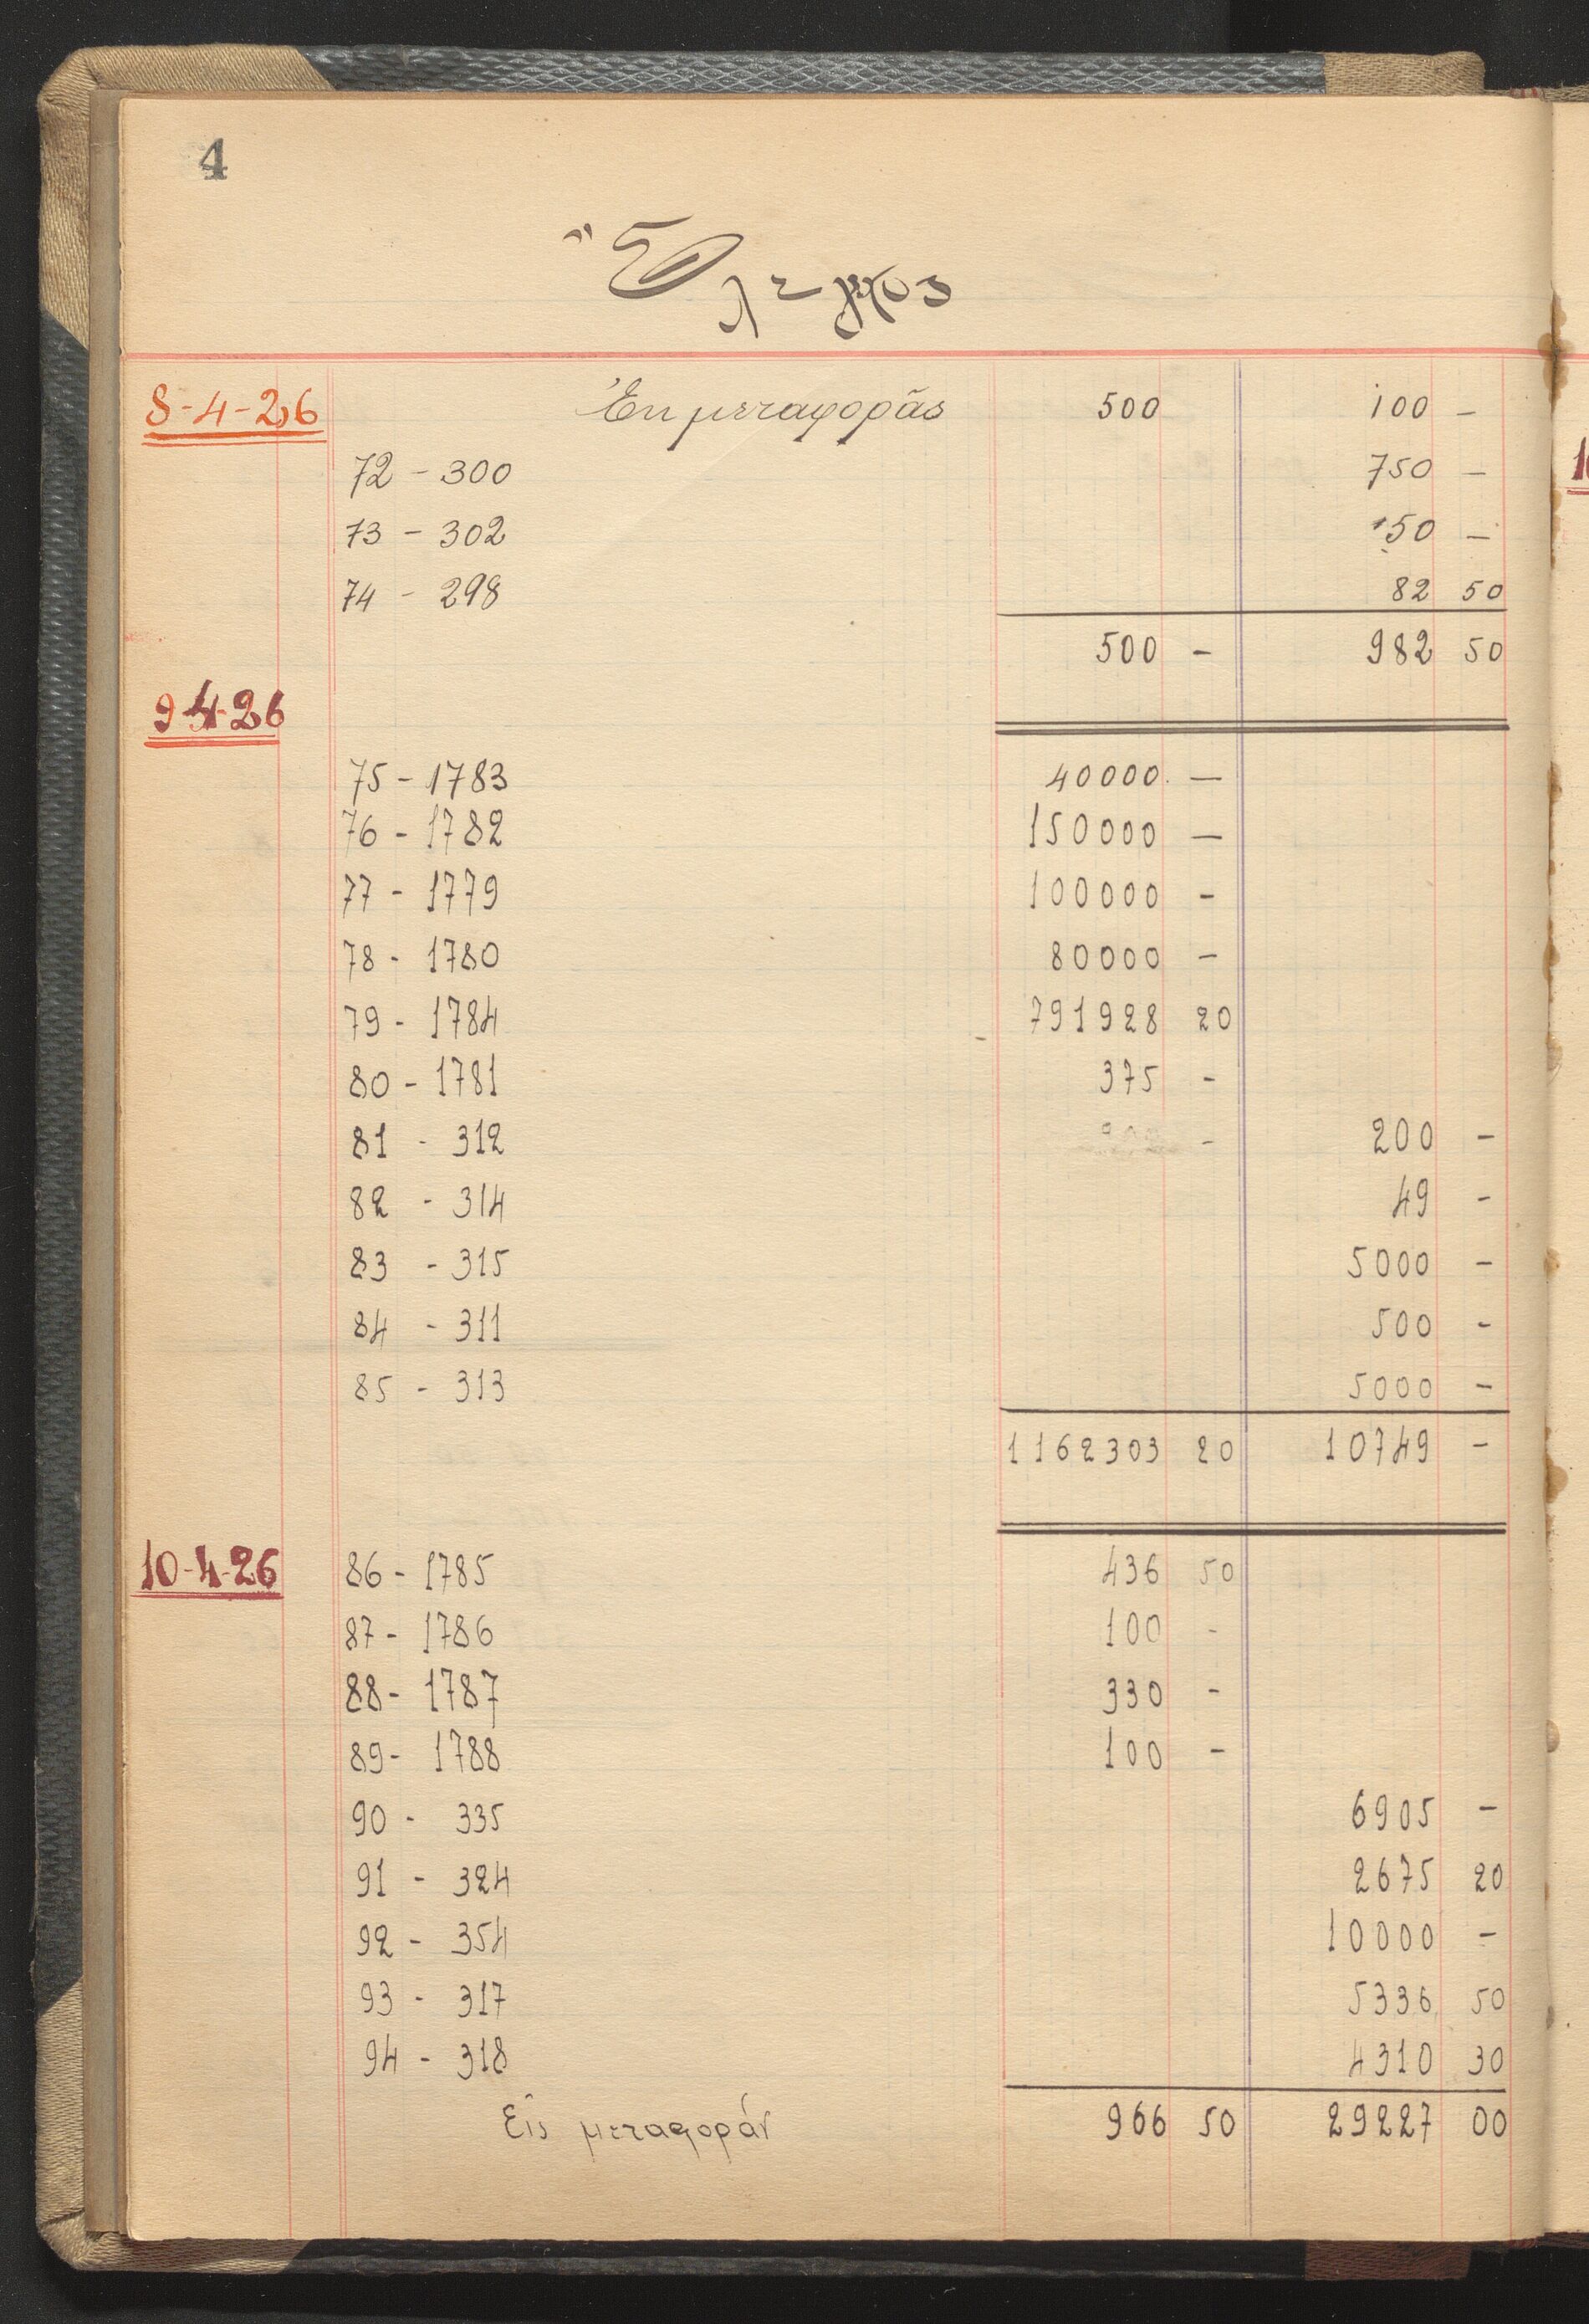 4
Ἔλεγχος
8-4-26 Ἐκ μεταφορᾶς 500 100 -
72 - 300 750 -
73 - 302 50 -
74 - 298 82 50
500 - 982 50
9-4-26
75 - 1783 40000 -
76 - 1782 150000 -
77 - 1779 100000 -
78 - 1780 80000 -
79 - 1784 791928 20
80 - 1781 375 -
81 - 312 200 -
82 - 314 49 -
83 - 315 5000 -
84 - 311 500 -
85 - 313 5000 -
1162303 20 10749 -
10-4-26 86 - 1785 436 50
87 - 1786 100 -
88 - 1787 330 -
89 - 1788 100 -
90 - 335 6905 -
91 - 324 2675 20
92 - 354 10000 -
93 - 317 5336 50
94 - 318 4310 30
Εἰς μεταφοράν 966 50 29227 00